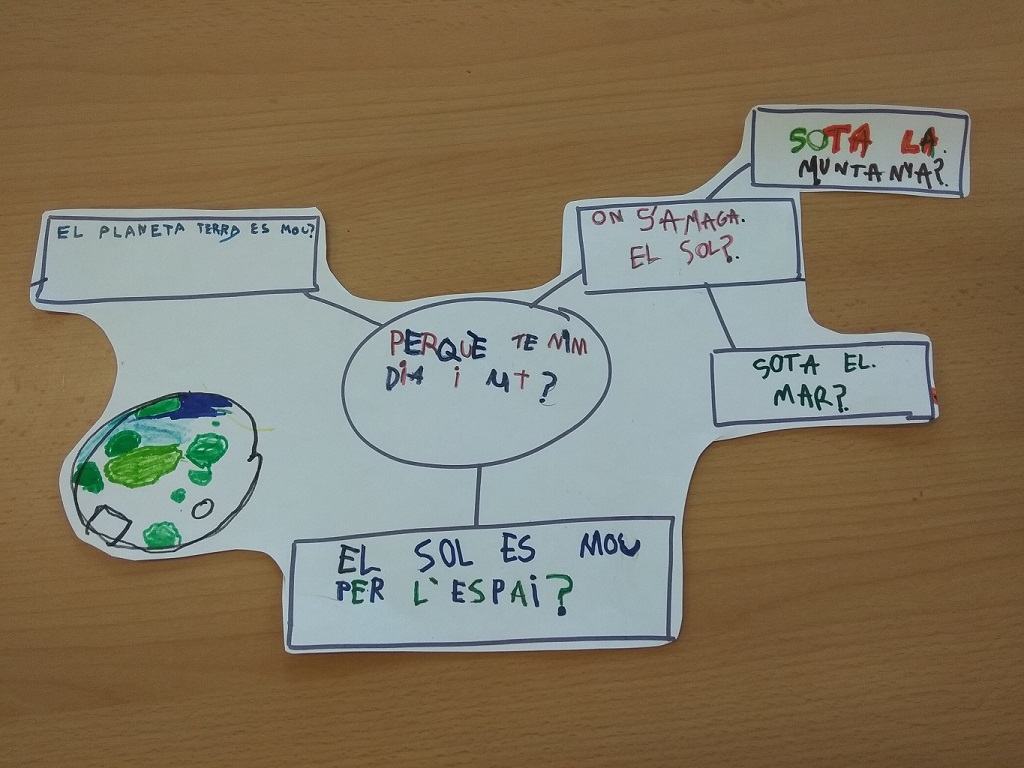 SOTA LA.
MUNTANYA?
ON S'AMAGA.
EL SOL?
EL PLANETA TERRA ES MOU?
PERQUE TENIM
DiA i NIT?
SOTA EL.
MAR?
EL SOL ES MOU
PER L'ESPAi?